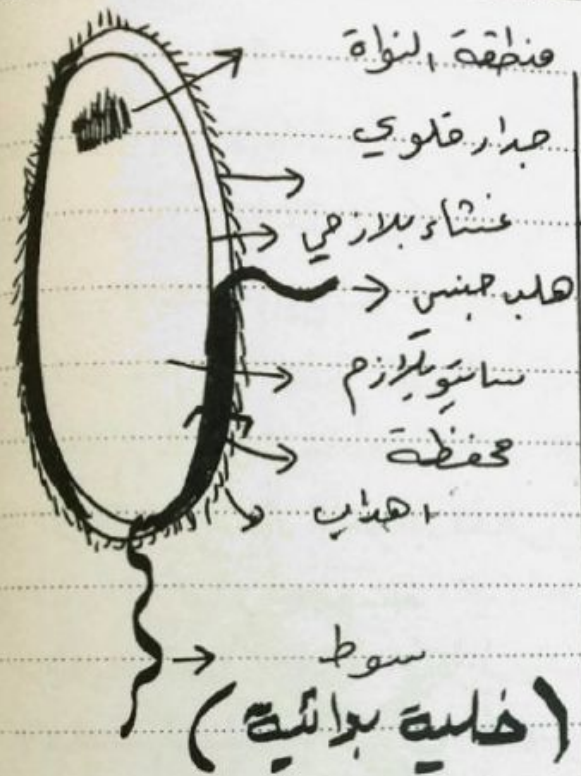 منطقة النواة
جدار خلوي
غشاء بلازمي
هلب جنسي
سايتوبلازم
محفظة
اهداب
سوط
(خلية بدائية)